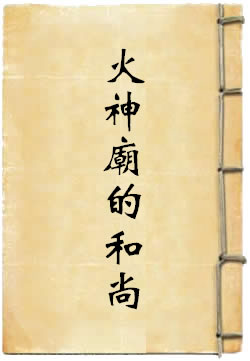 火神廟的和尚